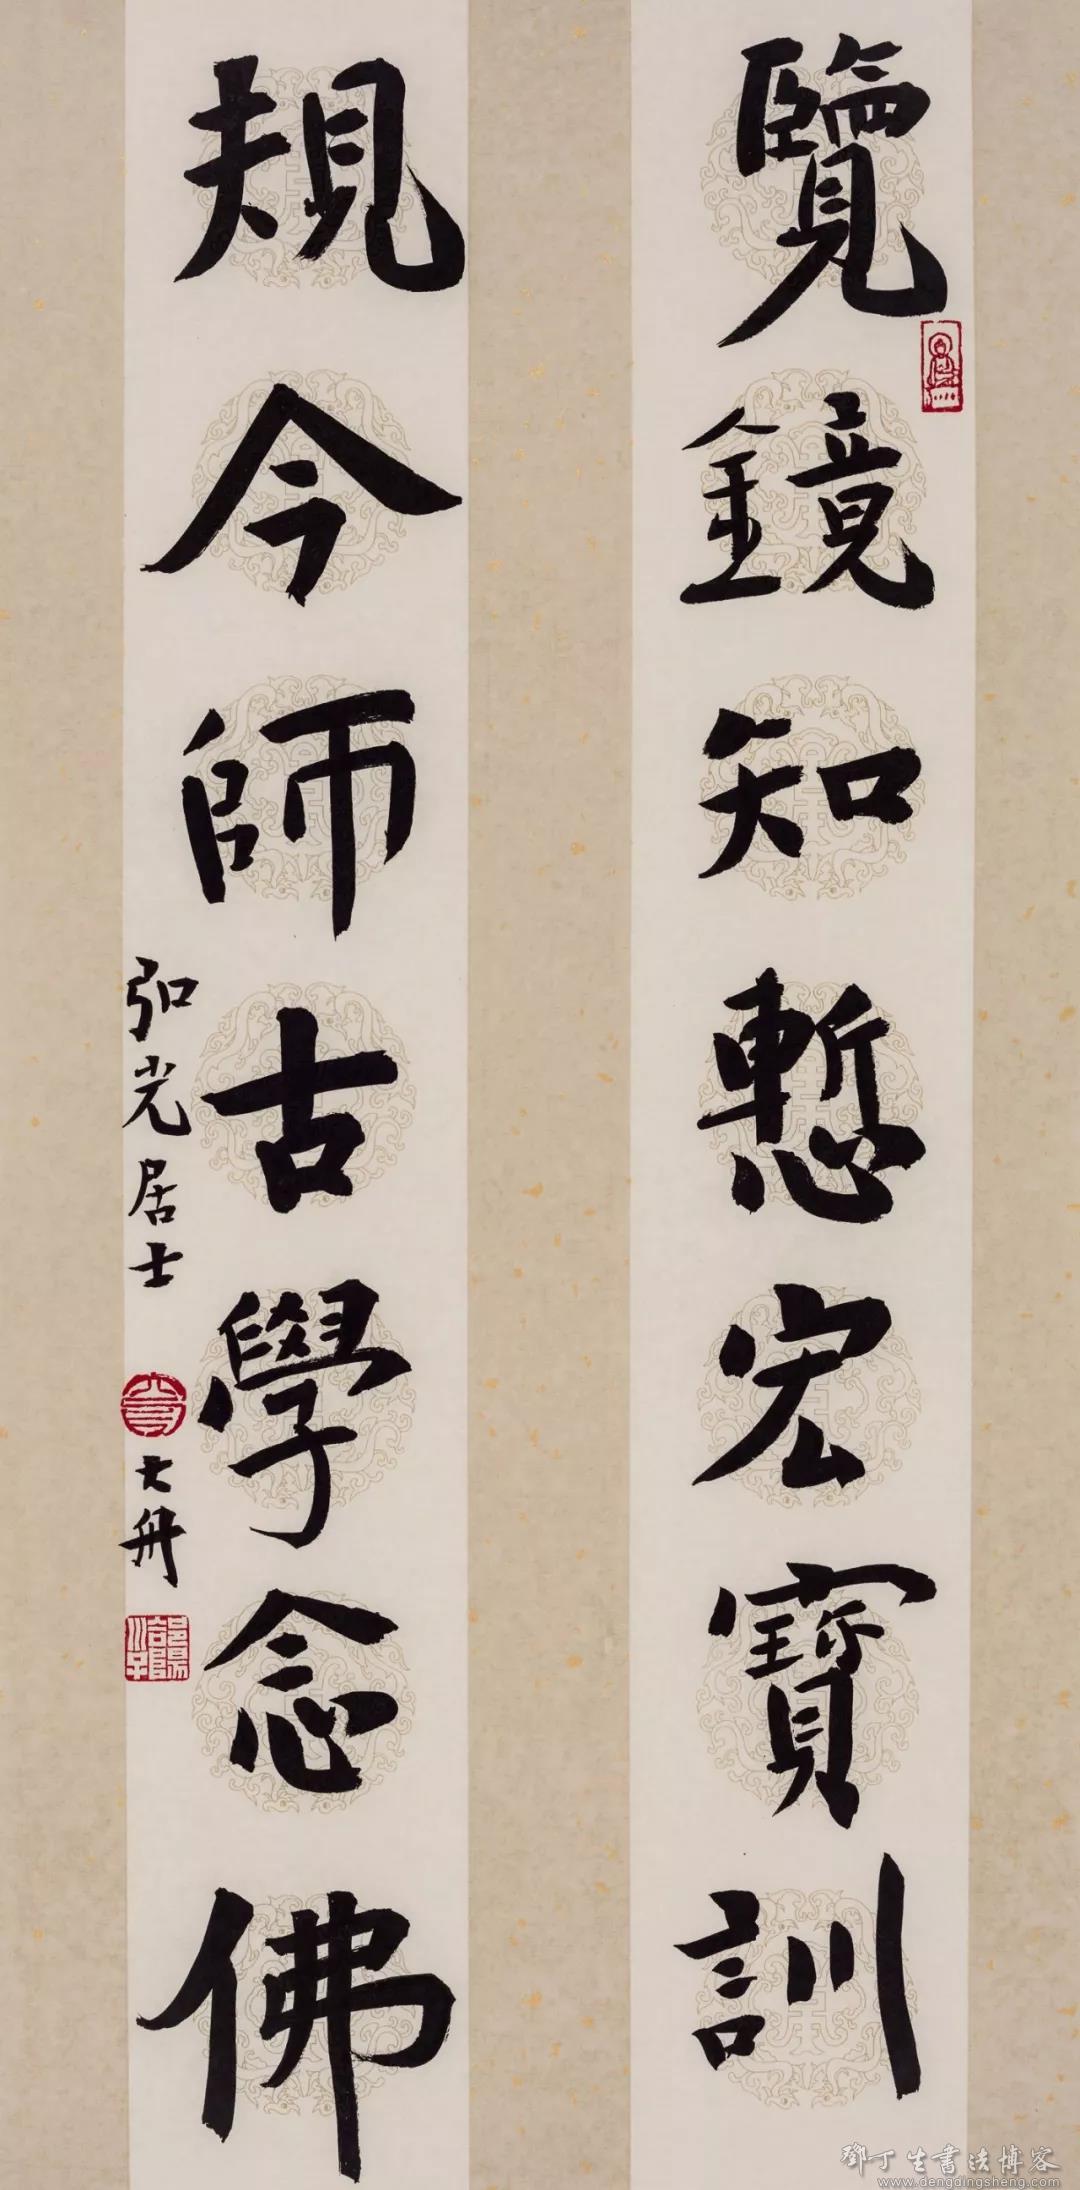 覽鏡知慙宏寶訓
規今師古學念佛
弘光居士
大舟
鄧丁生書法博客
www.dengdingsheng.com